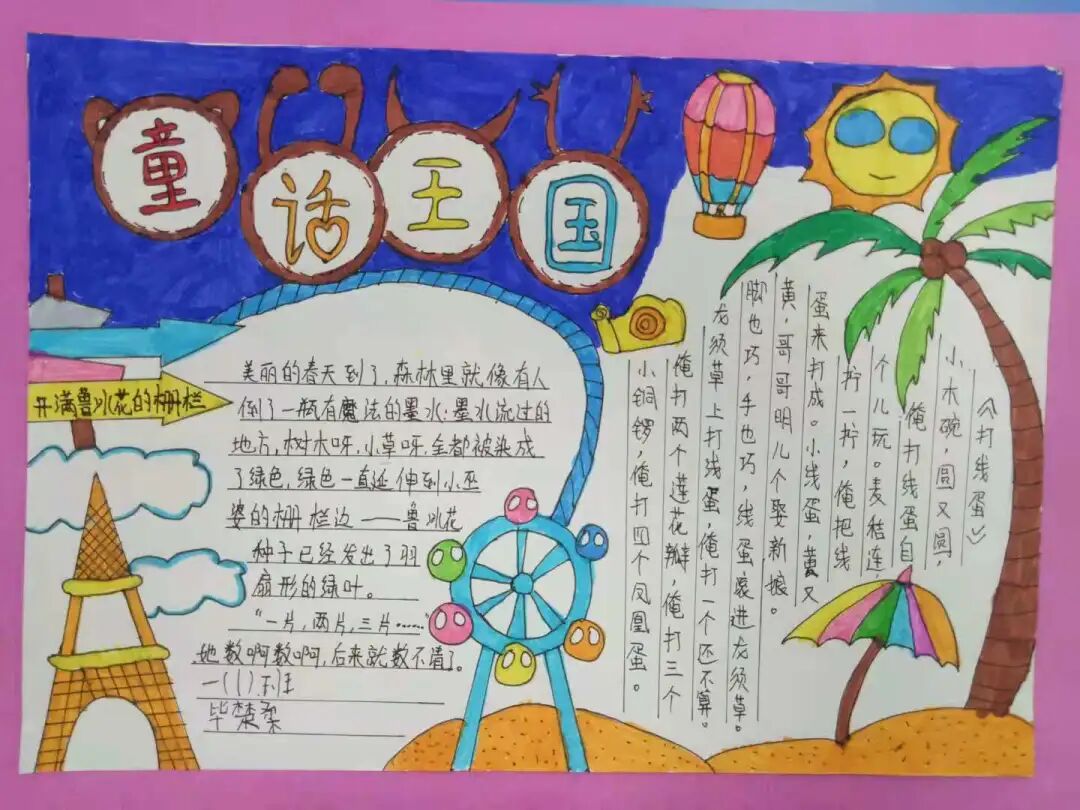 童话王国
开满鲁冰花的栅栏
美丽的春天到了,森林里就像有人
倒了一瓶有魔法的墨水:墨水流过的
地方,树木呀,小草呀,全都被染成
了绿色,绿色一直延伸到小巫
婆的栅栏边——鲁冰花
种子已经发出了羽
扇形的绿叶。
“一片,两片,三片……”
她数啊数啊,后来就数不清了。
一(1).班
毕楚
《打线蛋》
小木碗,圆又圆,
俺打线蛋自
个儿玩。麦秸连,
拧一拧,俺把线
蛋来打成。小线蛋,黄又
黄,哥哥明儿个娶新娘。
脚也巧,手也巧,线蛋滚进龙须草。
龙须草上打线蛋,俺打一个还不算。
俺打两个莲花瓣,俺打三个
小铜锣,俺打四个凤凰蛋。